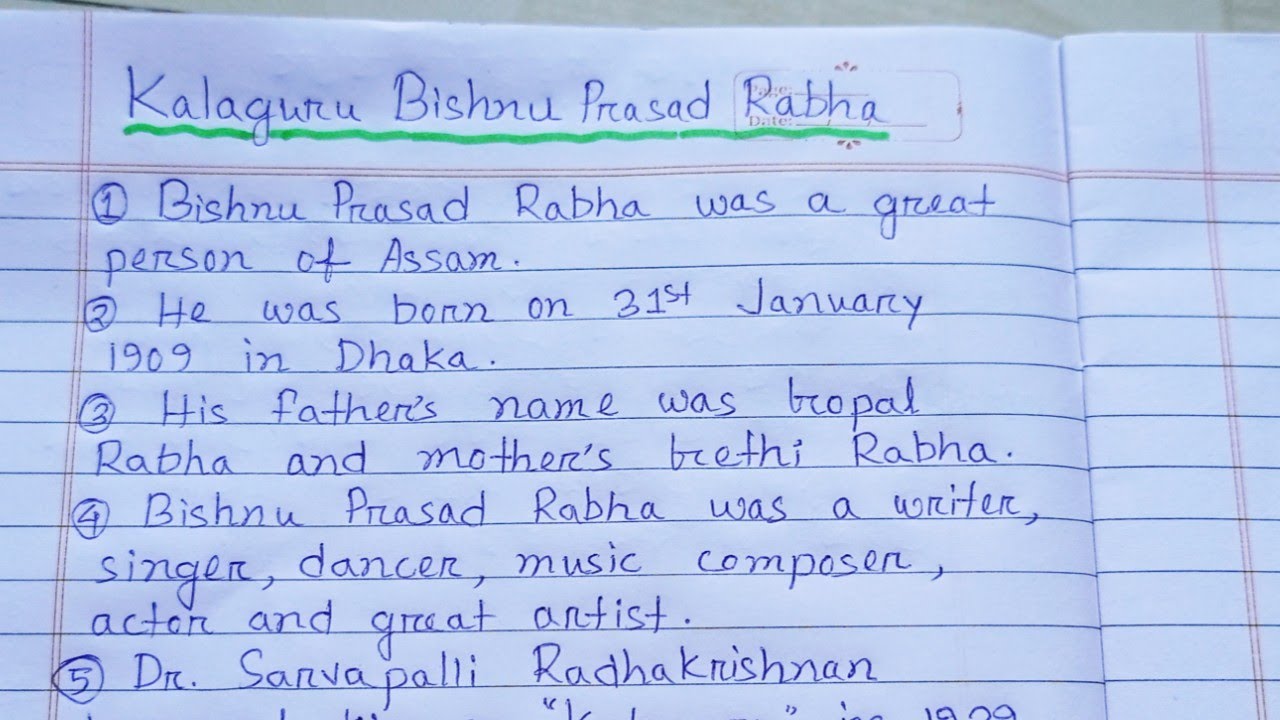 Kalaguru Bishnu Prasad Rabha
Page:
Date:
① Bishnu Prasad Rabha was a great
person of Assam.
② He was born on 31st January
1909 in Dhaka.
③ His father's name was Gopal
Rabha and mother's Gethi Rabha.
④ Bishnu Prasad Rabha was a writer,
singer, dancer, music composer,
actor and great artist.
⑤ Dr. Sarvapalli Radhakrishnan
in